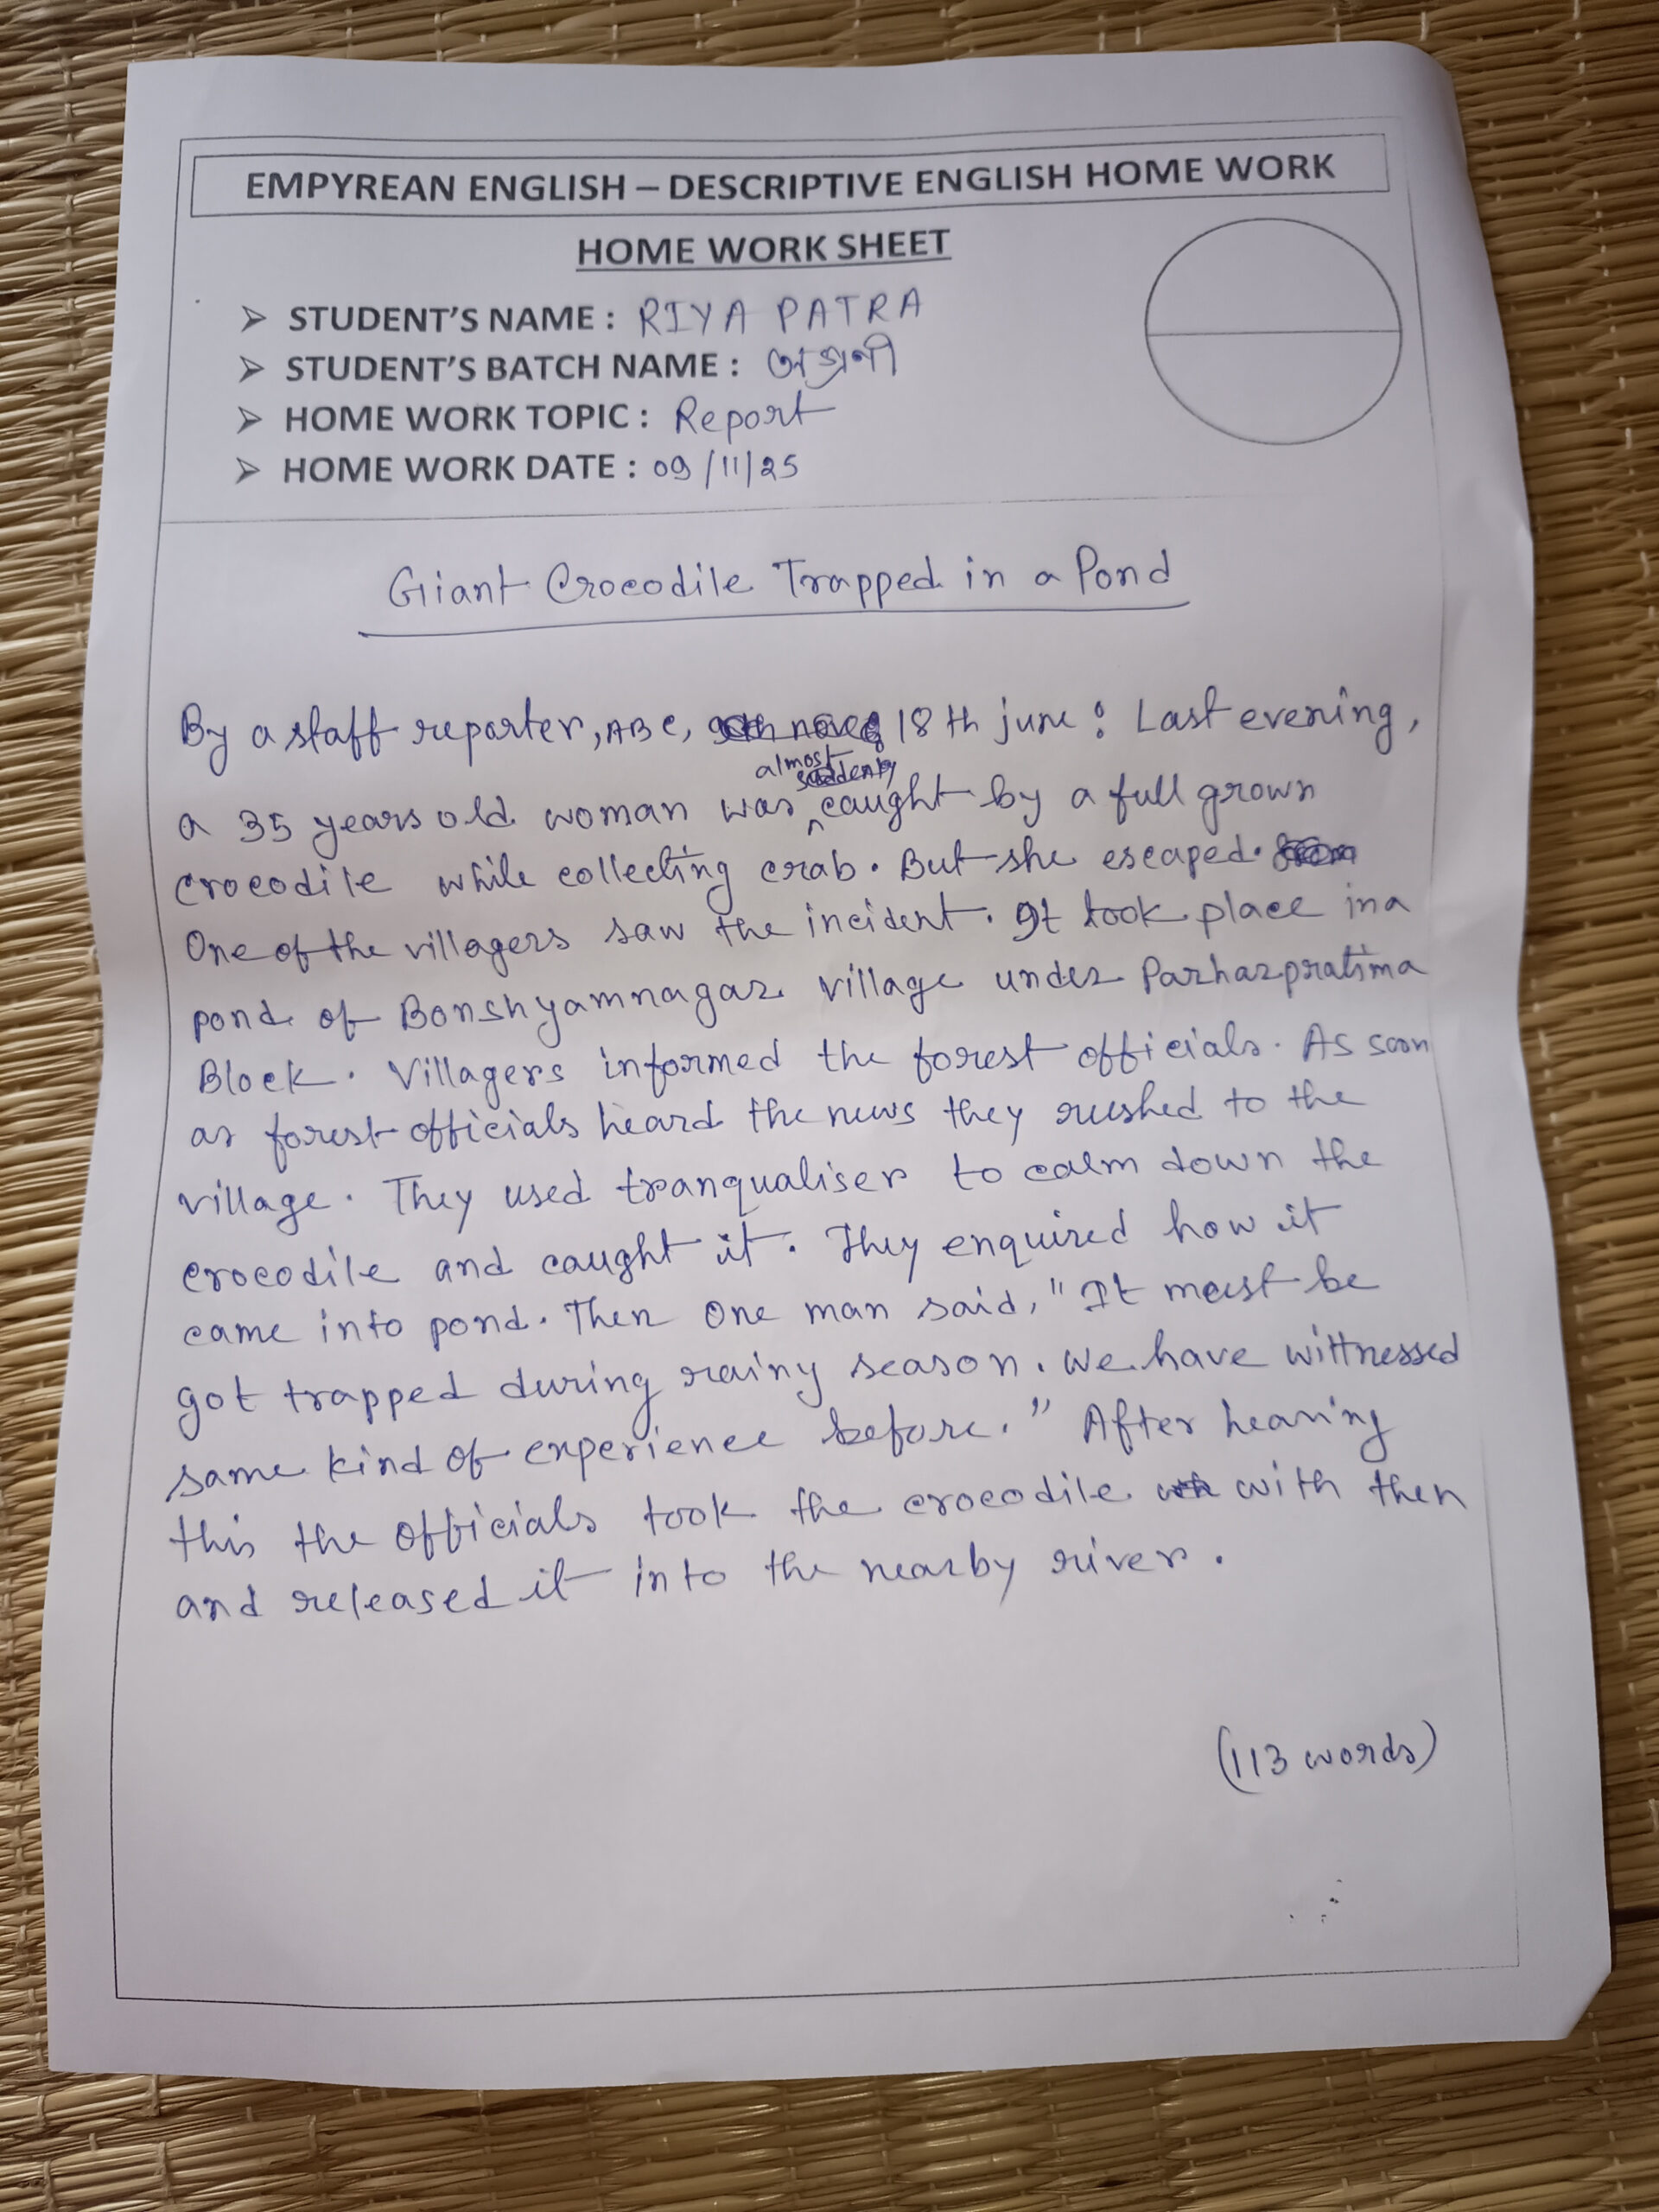 EMPYREAN ENGLISH – DESCRIPTIVE ENGLISH HOME WORK
HOME WORK SHEET
➤ STUDENT'S NAME : RIYA PATRA
➤ STUDENT'S BATCH NAME : অগ্রণী
➤ HOME WORK TOPIC : Report
➤ HOME WORK DATE : 09/11/25
Giant Crocodile Trapped in a Pond
By a staff reporter, ABC, 18th june : Last evening,
almost
a 35 years old woman was caught by a full grown
crocodile while collecting crab. But she escaped.
One of the villagers saw the incident. It took place in a
pond of Bonshyamnagar village under Parharpratima
Block. Villagers informed the forest officials. As soon
as forest officials heard the news they rushed to the
village. They used tranqualiser to calm down the
crocodile and caught it. They enquired how it
came into pond. Then one man said, "It must be
got trapped during rainy season. We have wittnessed
same kind of experience before." After hearing
this the officials took the crocodile with then
and released it into the nearby river.
(113 words)